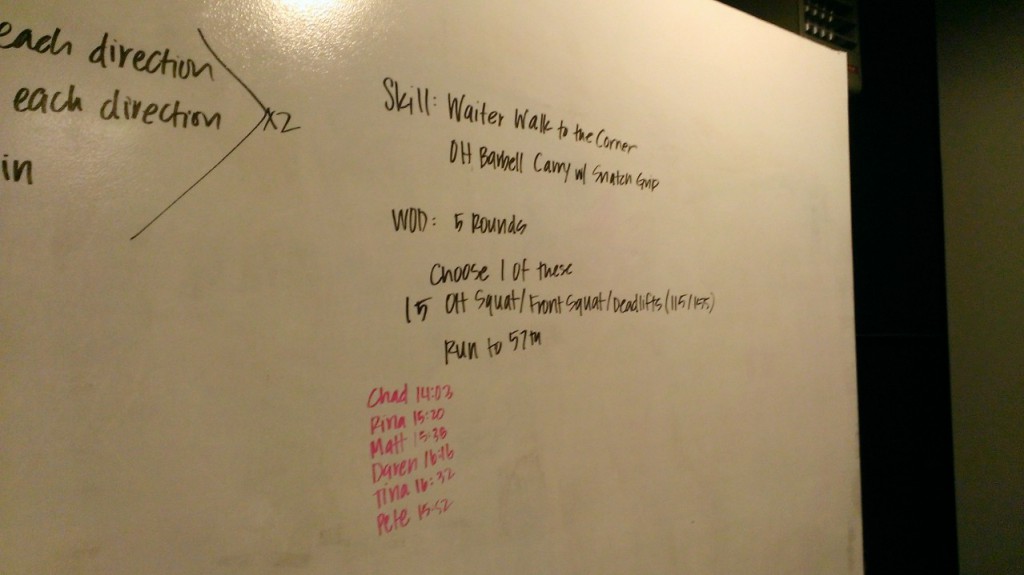 each direction
each direction
x2
in
Skill: Waiter Walk to the Corner
OH Barbell Carry w/ Snatch Grip
WOD: 5 Rounds
Choose 1 of these
15 OH Squat/Front Squat/Deadlifts (115/155)
Run to 57th
Chad 14:03
Rina 15:20
Matt 15:38
Daren 16:16
Tina 16:32
Pete 15:52